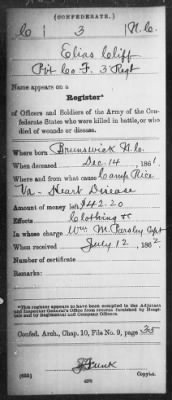 (CONFEDERATE.)
C 3 N.C.
Elias Cliff
Pvt Co F. 3 Regt
Name appears on a
Register*
of Officers and Soldiers of the Army of the Confederate States who were killed in battle, or who died of wounds or disease.
Where born Brunswick N.C.
When deceased Dec. 14, 1861
Where and from what cause Camp Rice
Va - Heart Disease
Amount of money left $42.20
Effects Clothing &c
In whose charge Wm M. Parsley Capt
When received July 12, 1862
Number of certificate
Remarks:
*This register appears to have been compiled in the Adjutant and Inspector General's Office from returns furnished by Hospitals and by Regimental and Company Officers.
Confed. Arch., Chap. 10, File No. 9, page 35
J Funk
(635) Copyist.